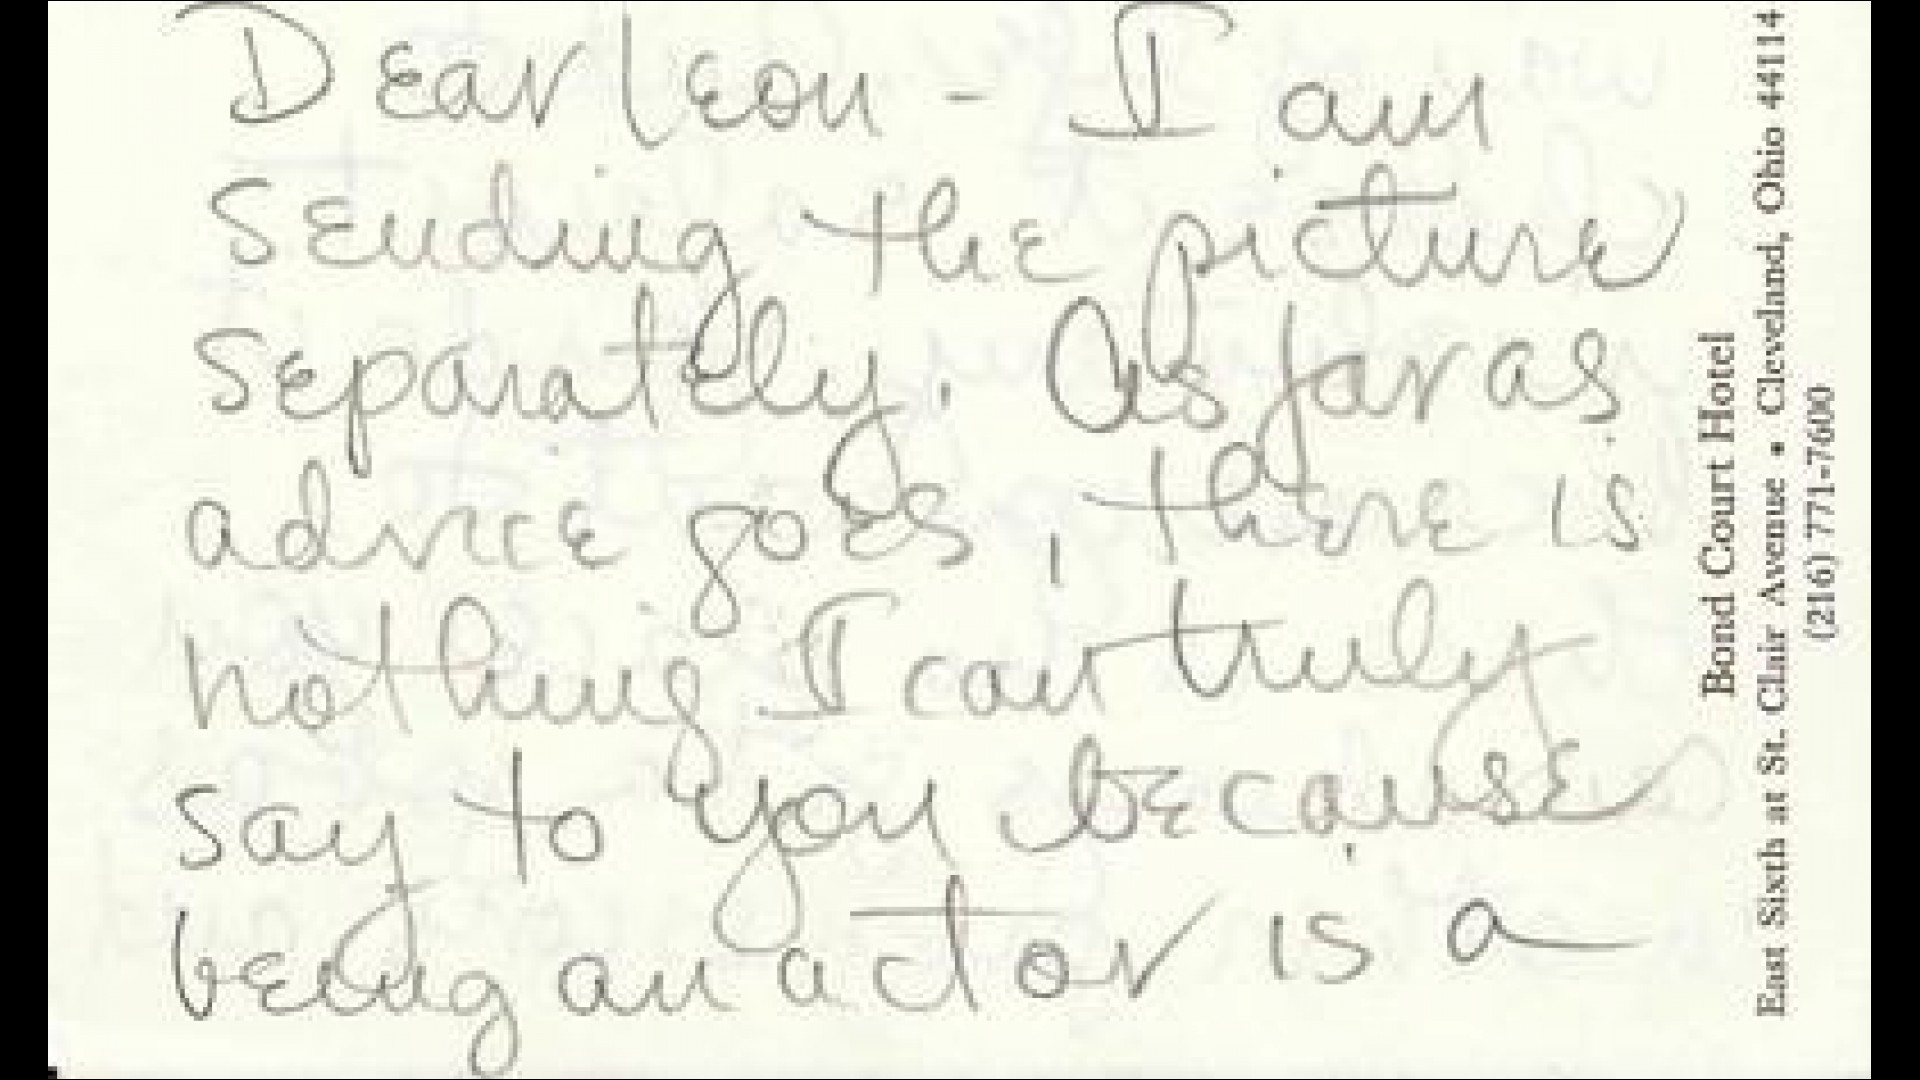 Dear Leon - I am
sending the picture
separately. As far as
advice goes, there is
nothing I can truly
say to you because
being an actor is a
Bond Court Hotel
East Sixth at St. Clair Avenue • Cleveland, Ohio 44114
(216) 771-7600